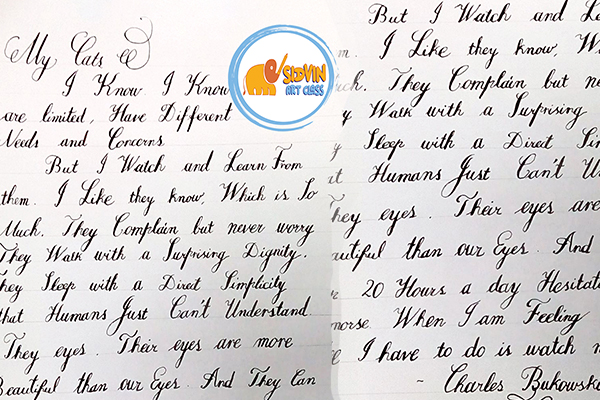 My Cats
I Know. I Know
are limited, Have Different
Needs and Concerns
But I Watch and Learn From
them. I Like they know, Which is So
Much. They Complain but never worry
They Walk with a Surprising Dignity.
They Sleep with a Direct Simplicity
that Humans Just Can't Understand.
They eyes. Their eyes are more
Beautiful than our Eyes. And They Can
SIDVIN
ART CLASS
But I Watch and Le
m. I Like they know, W
ch. They Complain but ne
y Walk with a Surprising
Sleep with a Direct Sim
t Humans Just Can't U
They eyes. Their eyes are
autiful than our Eyes. And
20 Hours a day Hesitat
morse. When I am Feeling
I have to do is watch
- Charles Bukowski